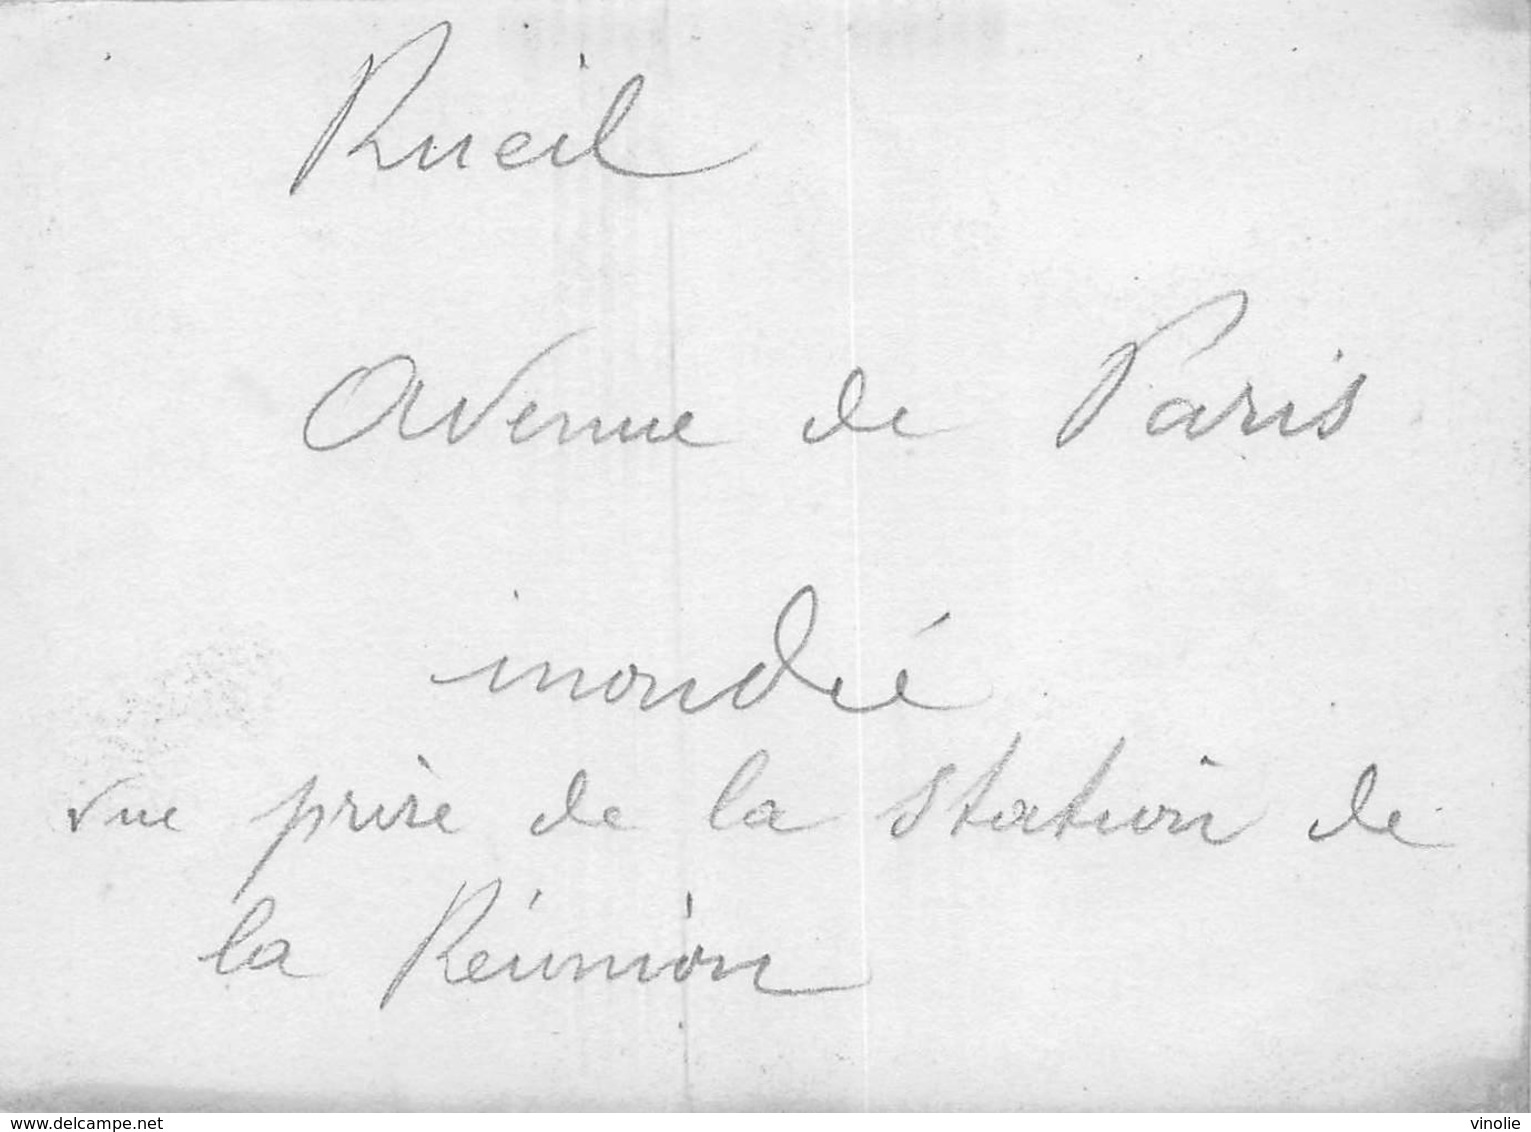 Rueil
avenue de Paris
inondée
vue prise de la station de
la Réunion
www.delcampe.net
vinolie